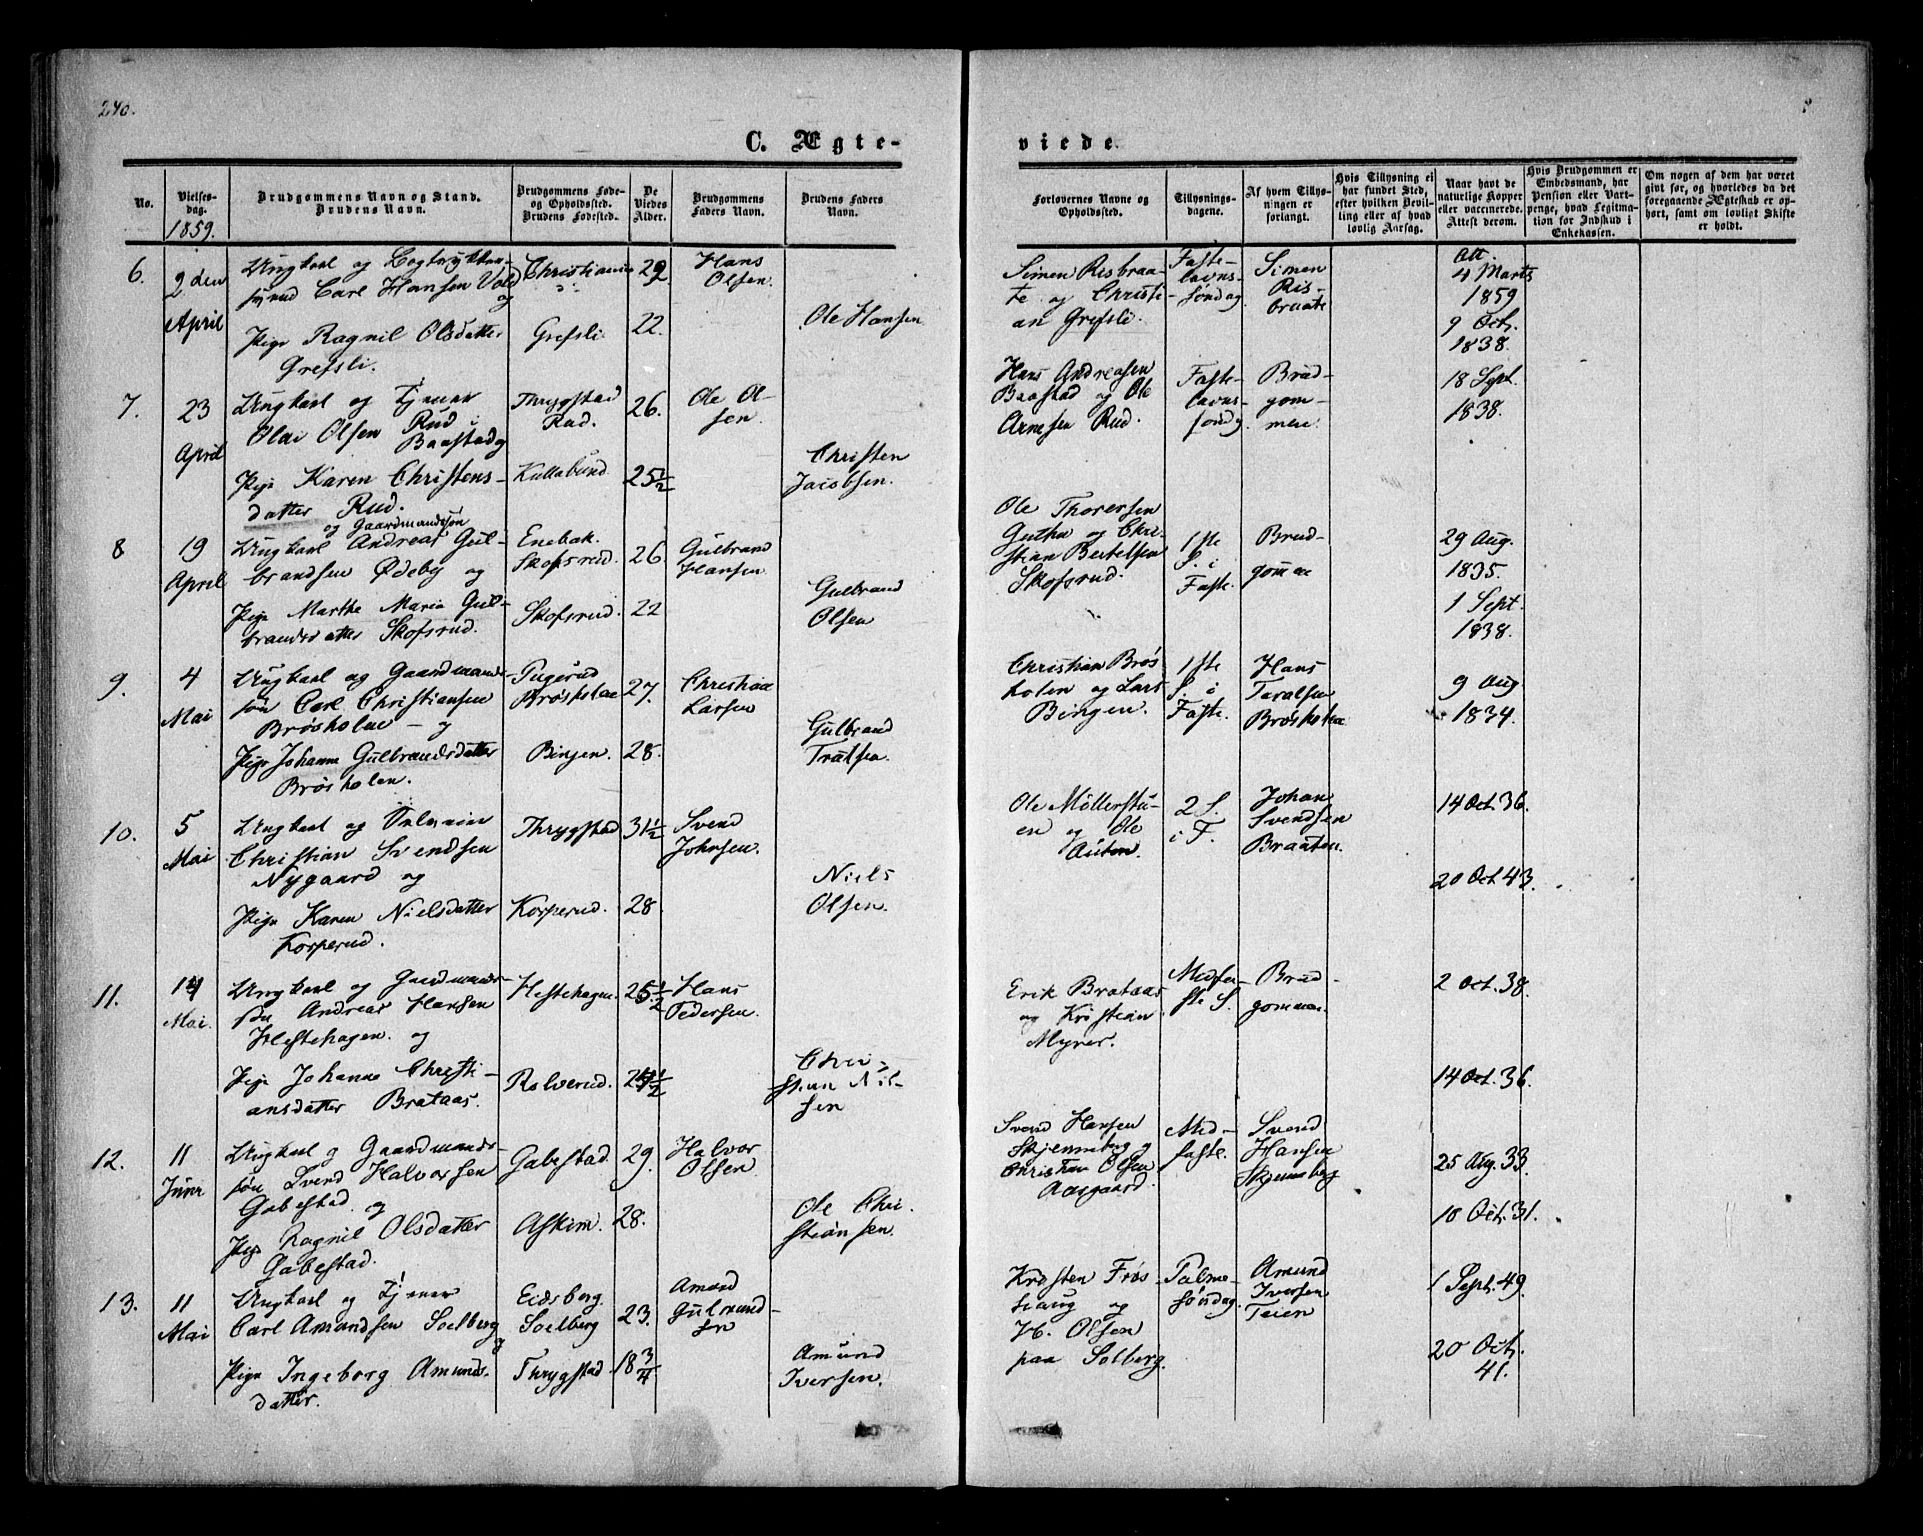 240.
C. Ægte-
viede.
No.
Vielses-
dag.
1859.
Brudgommens Navn og Stand.
Brudens Navn.
Brudgommens Føde-
og Opholdssted.
Brudens Fødested.
De
Viedes
Alder.
Brudgommens
Faders Navn.
Brudens Faders
Navn.
Forlovernes Navne og
Opholdssted.
Tillysnings-
dagene.
Af hvem Tillys-
ningen er
forlangt.
Hvis Tillysning ei
har fundet Sted,
efter hvilken Bevil-
ling eller af hvad
lovlig Aarsag.
Naar havt de
naturlige Kopper
eller vaccinerede.
Attest derom.
Hvis Brudgommen er
Embedsmand, har
Pension eller Vart-
penge, hvad Legitima-
tion for Indskud i
Enkekassen.
Om nogen af dem har været
gift før, og hvorledes da det
foregaaende Ægteskab er op-
hørt, samt om lovligt Skifte
er holdt.
6.
2den
April
Ungkarl og
Carl Hansen Vold
og
Pige Ragnil Olsdatter
Grefsli.
Christiania
Grefsli.
29
22.
Hans
Olsen.
Ole Hansen
Simen Risbraa-
te og Christi-
an Grefsli.
Faste-
lavns-
søndag
Simen
Ris-
braate
Att.
4 Marts
1859
9 Oct.
1838.
7.
23
April
Ungkarl og Tjener
Olai Olsen Rud
Baastad og
Pige Karen Christens-
datter Rud.
Thrygstad
Rud.
Kullebund
26.
25 1/2
Ole Ol-
sen.
Christen
Jacobsen.
Hans Andreasen
Baastad og Ole
Arnesen Rud.
Faste-
lavns-
søndg.
Brud-
gom-
men.
18 Sept.
1838.
8
19
April
og Gaardmandssøn
Ungkarl Andreas Gul-
brandsen Ødeby og
Pige Marthe Maria Gul-
brandsdatter Skofsrud.
Enebak.
Skofsrud.
Skofsrud.
26.
22
Gulbrand
Hansen.
Gulbrand
Olsen
Ole Thoresen
Guthu og Chri-
stian Bertelsen
Skofsrud.
1ste
S. i
Faste.
Brud-
gomme
29 Aug.
1835.
1 Sept.
1838.
9.
4
Mai
Ungkarl og Gaardmands-
søn Carl Christiansen
Brøsholen - og
Pige Johanne Gulbrandsdatter
Brøsholen.
Brøsholen
Bingen.
27.
28.
Christian
Larsen
Gulbrand
Trulsen.
Christian Brøs-
holen og Lars
Bingen.
1ste
S. i
Faste.
Hans
Taralsen
Brøsholen
9 Aug
1834.
10.
5
Mai
Ungkarl og
Christian Svendsen
Nygaard og
Pige Karen Nielsdatter
Korperud.
Thrygstad
Korperud.
31 1/2
28.
Svend
Johnsen.
Niels
Olsen.
Ole Møllerstu-
en og Ole
Auten.
2 S.
i F.
Johan
Svendsen
Braaten.
14 Oct. 36.
20 Oct. 43.
11.
14
Mai.
Ungkarl og Gaardmands-
søn Andreas Hansen
Hestehagen. og
Pige Johanne Christi-
ansdatter Brataas.
Hestehagen.
Rolverud.
25 1/2
24 1/2
Hans
Pedersen.
Chri-
stian Nil-
sen
Erik Brataas
og Kristian
Myrer.
Midfa-
ste S.
Brud-
gommen.
2 Oct. 38.
14 Oct. 36.
12.
11
Juni
Ungkarl og Gaardmands-
søn Svend Halvorsen
Gabestad. og
Pige Ragnil Olsdatter
Gabestad.
Gabestad.
Askim.
29.
28.
Halvor
Olsen.
Ole Chri-
stiansen.
Svend Hansen
Skjenneberg og
Christian Olsen
Aasgaard.
Mid-
faste.
Svend
Hansen
Skjenneberg
25 Aug. 33.
10 Oct. 31.
13.
11
Mai
Ungkarl og Tjener
Carl Amundsen Solberg
og
Pige Ingeborg Amunds-
datter.
Eidsberg.
Solberg
Thrygstad.
23.
18 3/4
Amund
Gulmund-
sen
Amund
Iversen.
Kristen Frøs-
haug og
H. Olsen
paa Solberg.
Palme-
søndag.
Amund
Iversen
Teien
1 Sept. 49.
20 Oct.
41.